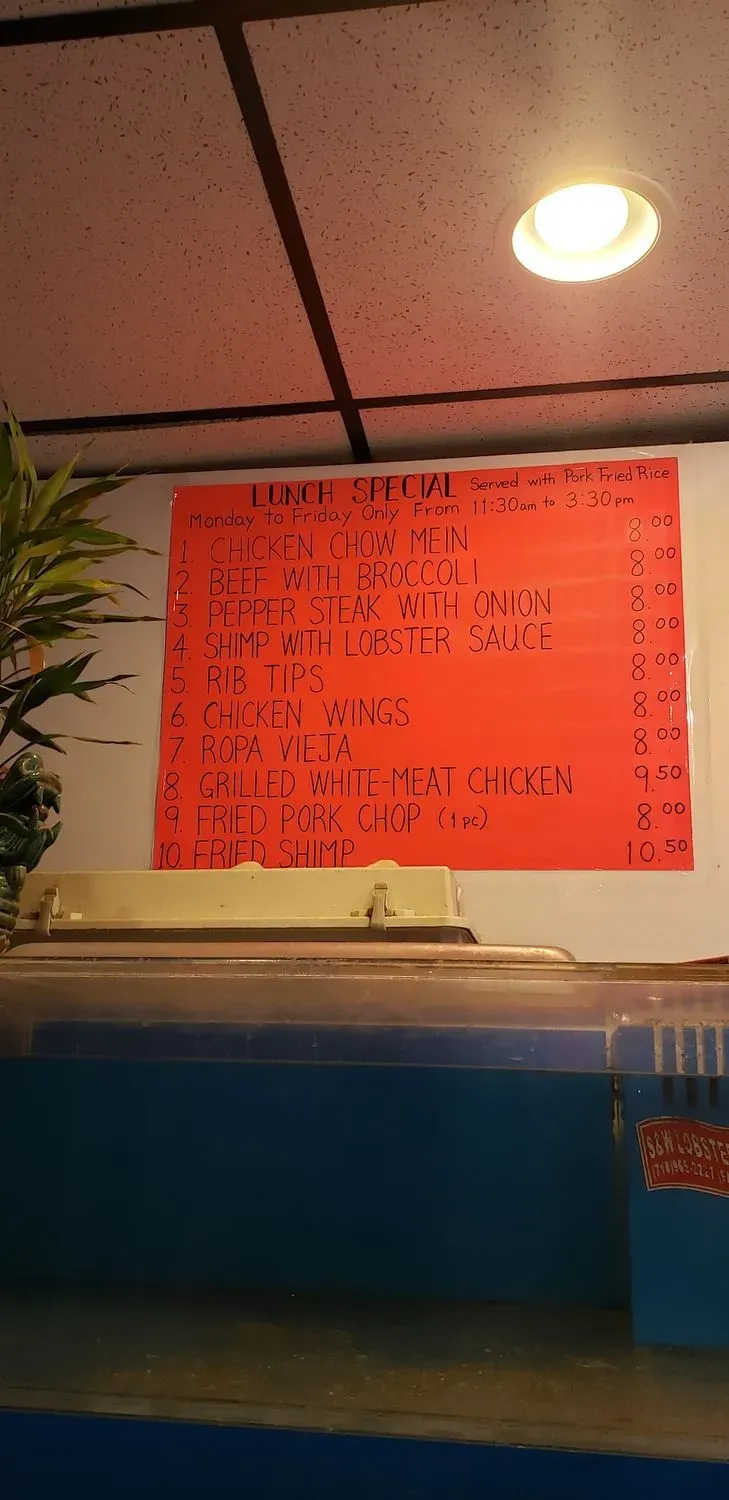 LUNCH SPECIAL Served with Pork Fried Rice
Monday to Friday Only From 11:30am to 3:30pm
1. CHICKEN CHOW MEIN 8.00
2. BEEF WITH BROCCOLI 8.00
3. PEPPER STEAK WITH ONION 8.00
4. SHIMP WITH LOBSTER SAUCE 8.00
5. RIB TIPS 8.00
6. CHICKEN WINGS 8.00
7. ROPA VIEJA 8.00
8. GRILLED WHITE-MEAT CHICKEN 9.50
9. FRIED PORK CHOP (1 pc) 8.00
10. FRIED SHIMP 10.50
S&W LOBSTE